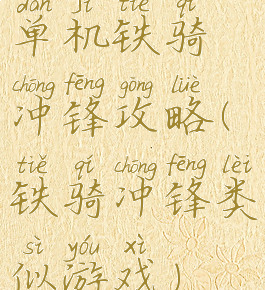 dān jī tiě qí
单机铁骑
chōng fēng gōng lüè
冲锋攻略(
tiě qí chōng fēng lèi
铁骑冲锋类
sì yóu xì
似游戏)